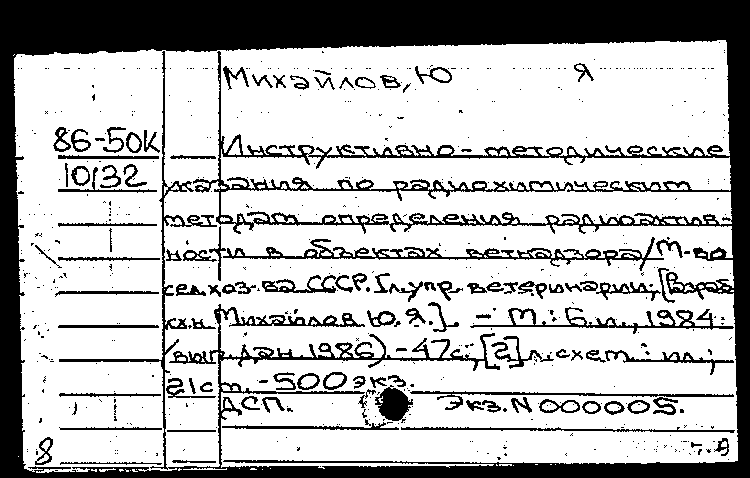 Михайлов, Ю Я
86-50К Инструктивно-методические
10132 указания по радиохимическим
методам определения радиоактив-
ности в объектах ветнадзора/М-во
сел.хоз-ва СССР. Гл.упр. ветеринарии; [Разраб
к.х.н Михайлов Ю.Я.]. - М.: Б.и., 1984
(вып. дан. 1986). - 47с., [2] л.схем. : ил.;
21см. - 500 экз.
ДСП. Экз. N 000005.
8